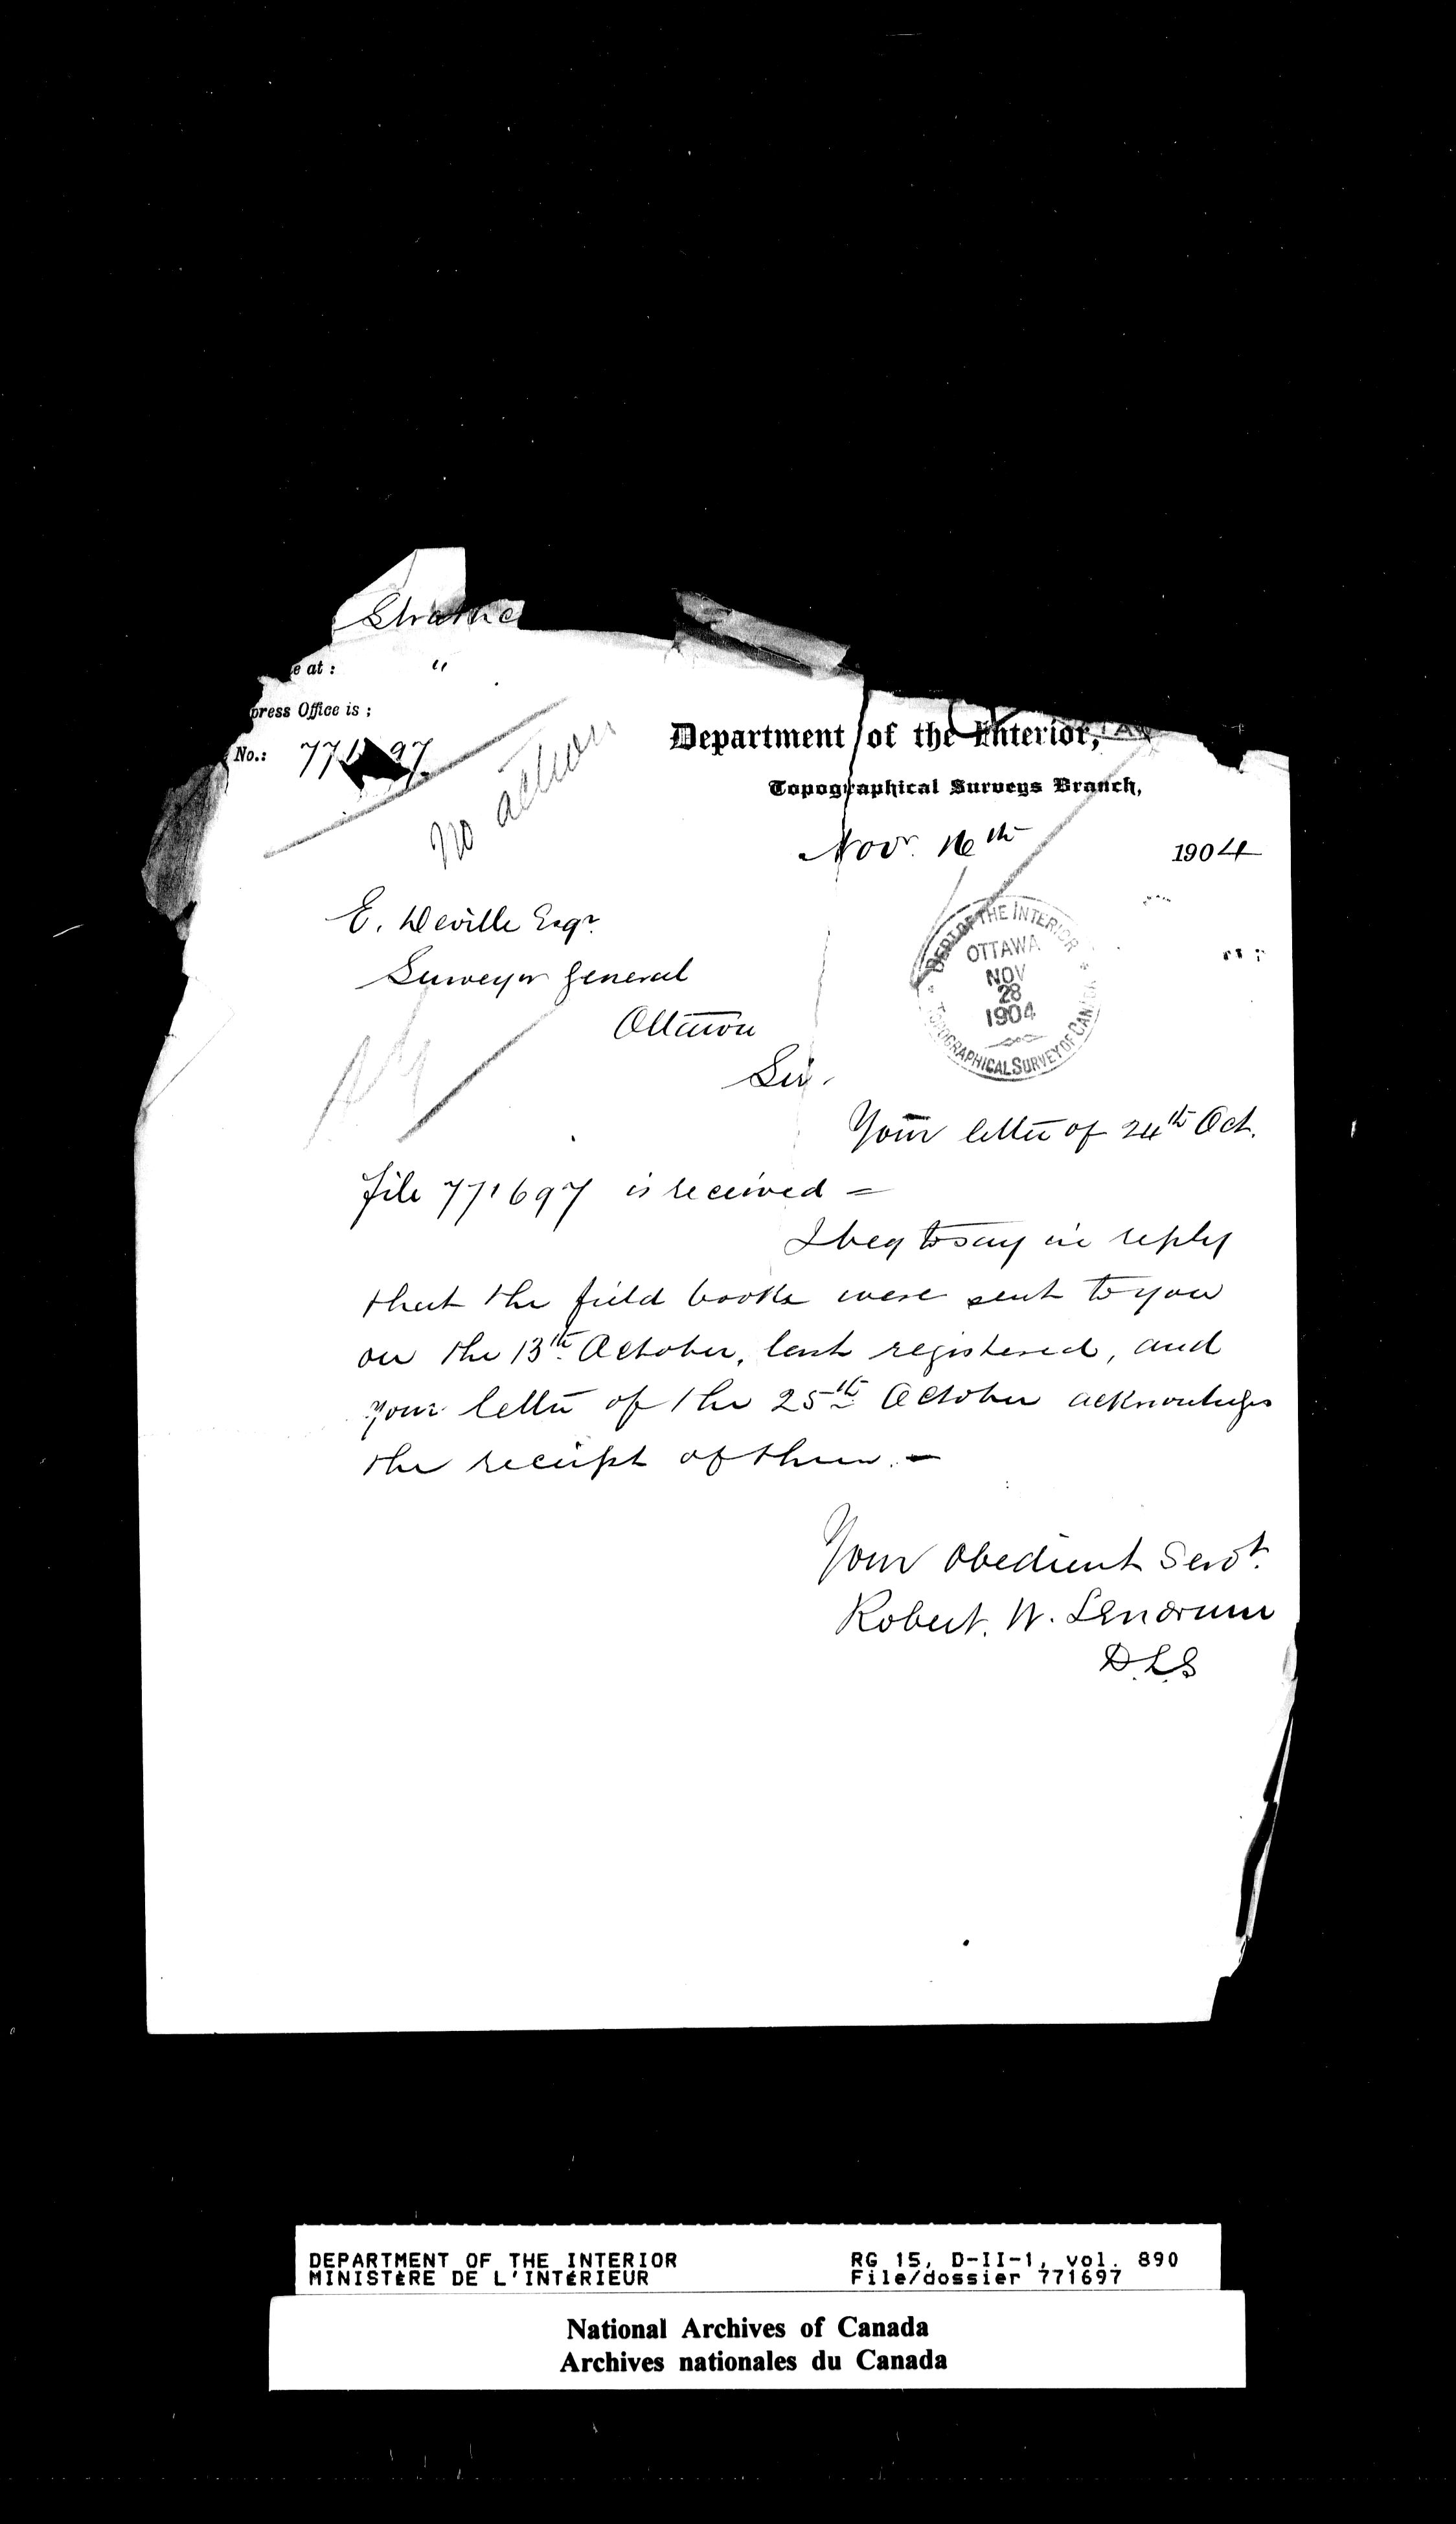 Strathc
e at : "
press Office is ;
No.: 771 97
No action
Department of the Interior,
Topographical Surveys Branch,
Novr. 16th 1904
E. Deville Esqr.
Surveyor General
Ottawa
DEPT OF THE INTERIOR
OTTAWA
NOV
28
1904
TOPOGRAPHICAL SURVEY OF CANADA
Sir.
Your letter of 24th Oct.
file 771697 is received =
I beg to say in reply
that the field books were sent to you
on the 13th October, last registered, and
your letter of the 25th October acknowledges
the receipt of them. -
Your Obedient Servt.
Robert. W. Lendrum
D.L.S
DEPARTMENT OF THE INTERIOR RG 15, D-II-1, vol. 890
MINISTÈRE DE L'INTÉRIEUR File/dossier 771697
National Archives of Canada
Archives nationales du Canada